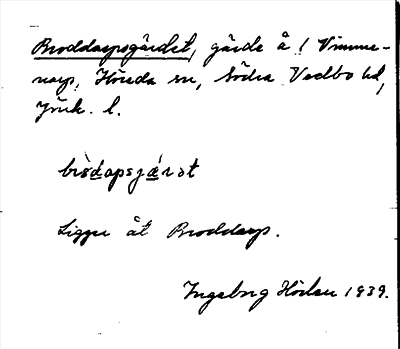 Broddarpsgärdet, gärde å 1 Vimme-
narp, Höreda sn, Södra Vedbo hd,
Jönk. l.
brodapsgærət
Ligger åt Broddarp.
Ingeborg Hörlen 1939.